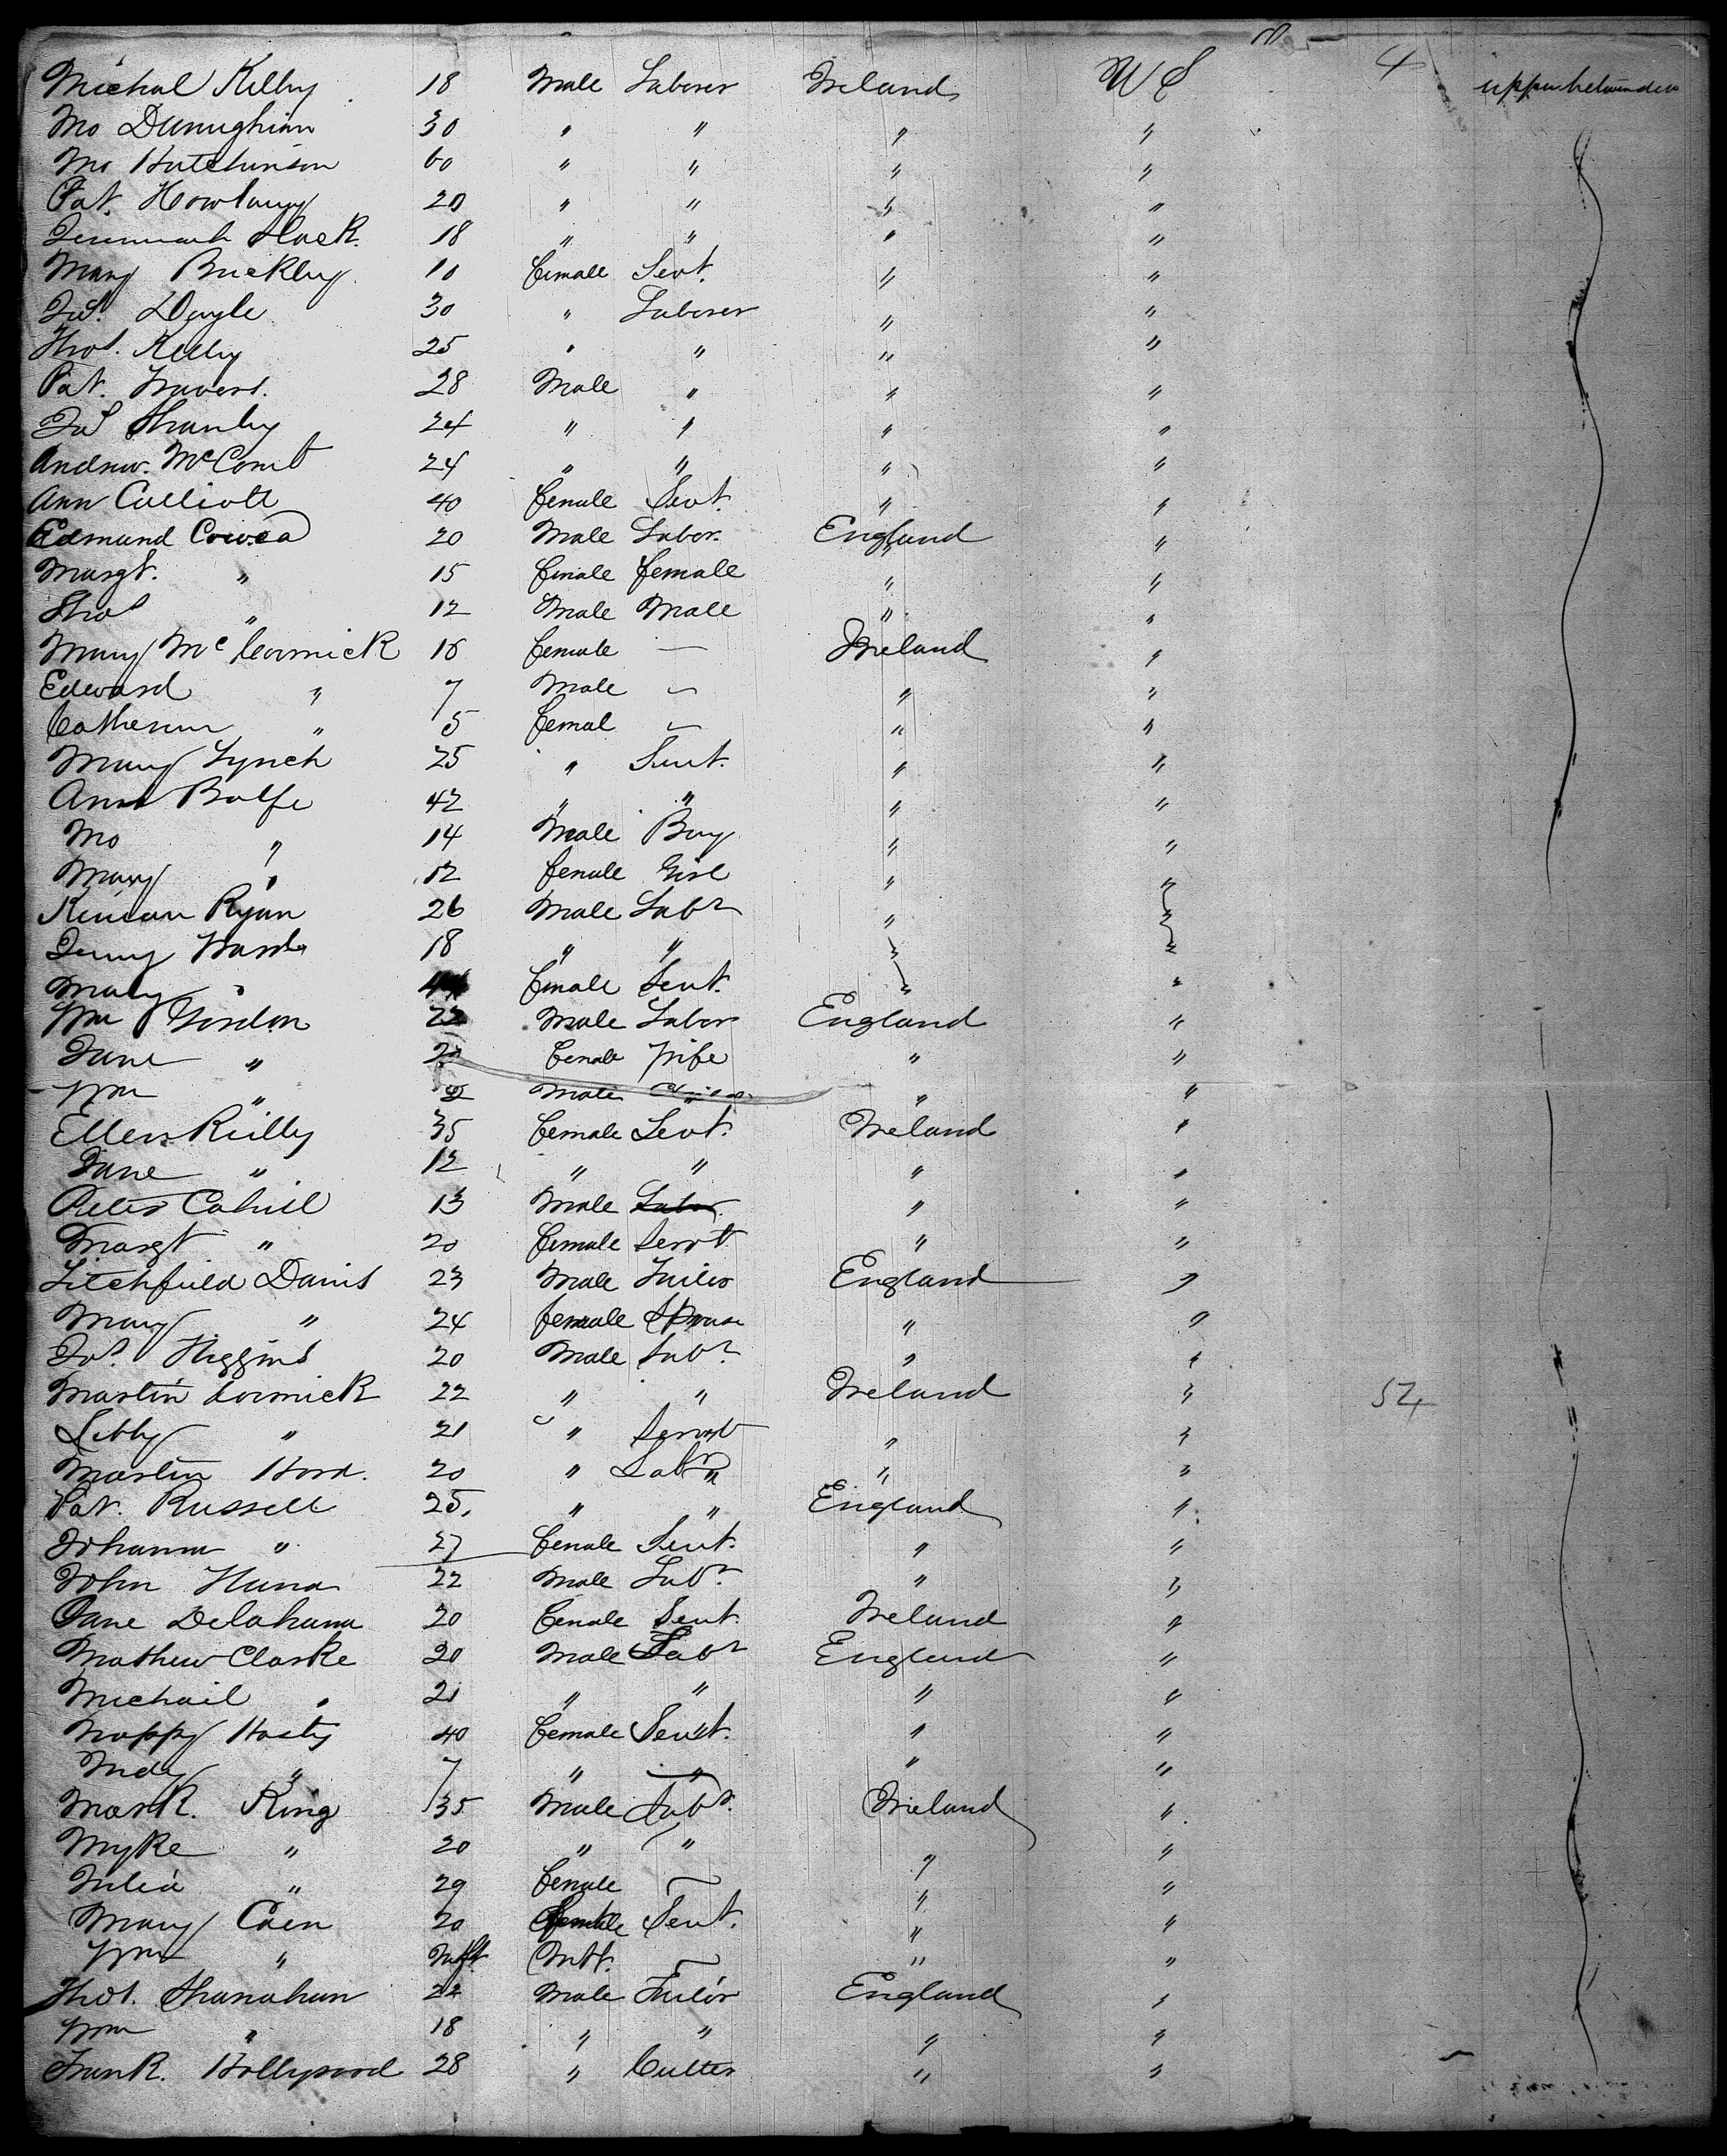 4
Michal Kelly 18 Male Laborer Ireland U S upper between decks
Mo 30 " " " "
Mo Hutchinson 60 " " " "
Pat. 20 " " " "
Jeremiah Slack. 18 " " " "
Mary Buckley. 10 Female Servt. " "
Jas. Doyle 30 " Laborer " "
Thos. Kelly 25 " " " "
Pat. Travers. 28 Male " " "
Jas Shanley 24 " " " "
Andrew. McComb 24 " " " "
Ann Culliott 40 Female Servt. " "
Edmund 20 Male Labor. England "
Margt. " 15 Female Female " "
Thos " 12 Male Male " "
Mary McCormick 16 Female — Ireland "
Edward " 7 Male — " "
Catherine " 5 Femal — " "
Mary Lynch 25 " Servt. " "
Ann Bolfe 42 " " " "
Mo " 14 Male Boy " "
Mary " 12 Female Girl " "
Ryan 26 Male Labr " "
18 " " " "
Mary " Female Servt. " "
Wm Gordon 22 Male Labor England "
Jane " Female Wife " "
Wm " 2 Male " "
Ellen Reilly 35 Female Servt. Ireland "
Jane " 12 " " " "
Peter Cahill 13 Male Labor. " "
Margt " 20 Female Servt " "
Litchfield Davis 23 Male Tailor England "
Mary " 24 Female Spouse " "
Jos. Higgins 20 Male Labr. " "
Martin Cormick 22 " " Ireland " 54
Libby " 21 " Servt " "
Martin Hord. 20 " Labr " "
Pat. Russell 25. " " England "
Johanna " 27 Female Servt. " "
John 22 Male Labr. " "
Jane Delahana 20 Female Servt. Ireland "
Mathew Clarke 20 Male Labr England "
Michail " 21 " " " "
Nappy Hasty 40 Female Servt. " "
" 7 " " " "
Mark. King 35 Male Labr. Ireland "
Myke " 20 " " " "
Julia " 29 Female — " "
Mary Coen 20 Female Servt. " "
Wm " Inft. Inft. — " "
Thos. Shanahan 22 Male Tailor England "
Wm " 18 " " " "
Frank. Hollywood 28 " Cutter " "